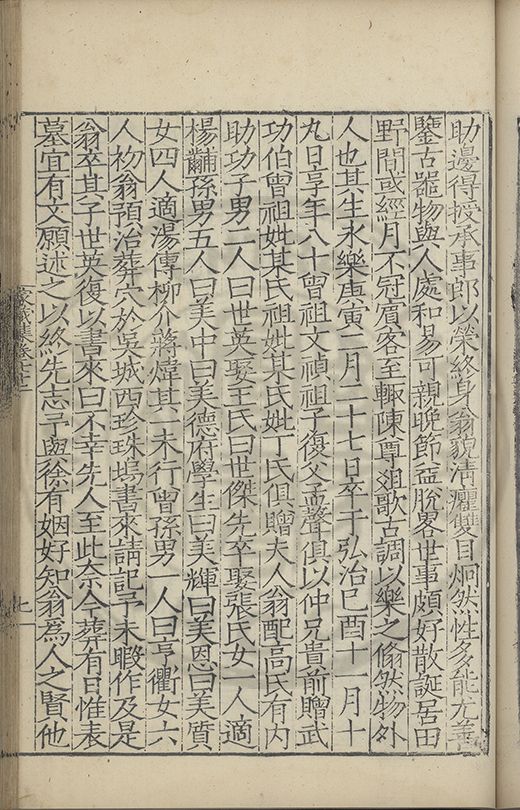 助邊得授承事郎以榮終身翁貌清癯雙目炯然性多能尤善
鑒古器物與人處和易可親晚節益脫畧世事頗好散誕居田
野間或經月不冠賓客至輙陳尊俎歌古調以樂之翛然物外
人也其生永樂庚寅二月二十七日卒于弘治己酉十一月十
九日享年八十曾祖文禎祖子復父孟聲俱以仲兄貴前贈武
功伯曾祖妣某氏祖妣某氏妣丁氏俱贈夫人翁配高氏有内
助功子男二人曰世英娶王氏曰世傑先卒娶張氏女一人適
楊黼孫男五人曰美中曰美德府學生曰美輝曰美恩曰美質
女四人適湯傳柳介蔣煒其一未行曾孫男一人曰亨衢女六
人初翁預治葬穴於吳城西珍珠塢書來請記予未暇作及是
翁卒其子世英復以書來曰不幸先人至此奈今葬有日惟表
墓宜有文願述之以終先志予與徐有姻好知翁爲人之賢他